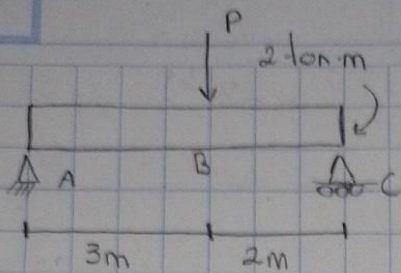 P
2 ton.m
A
B
C
3m
2m